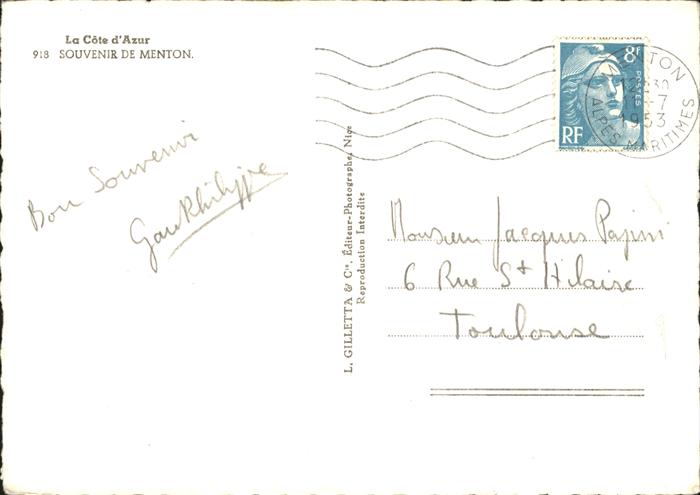 La Côte d'Azur
918 SOUVENIR DE MENTON.
Bon Souvenir
L. GILLETTA & Cie, Éditeur-Photographe, Nice
Reproduction Interdite
8F
POSTES
RF
MENTON
12 30
-7
1953
ALPES MARITIMES
Monsieur Jacques Papini
6 Rue St Hilaire
Toulouse